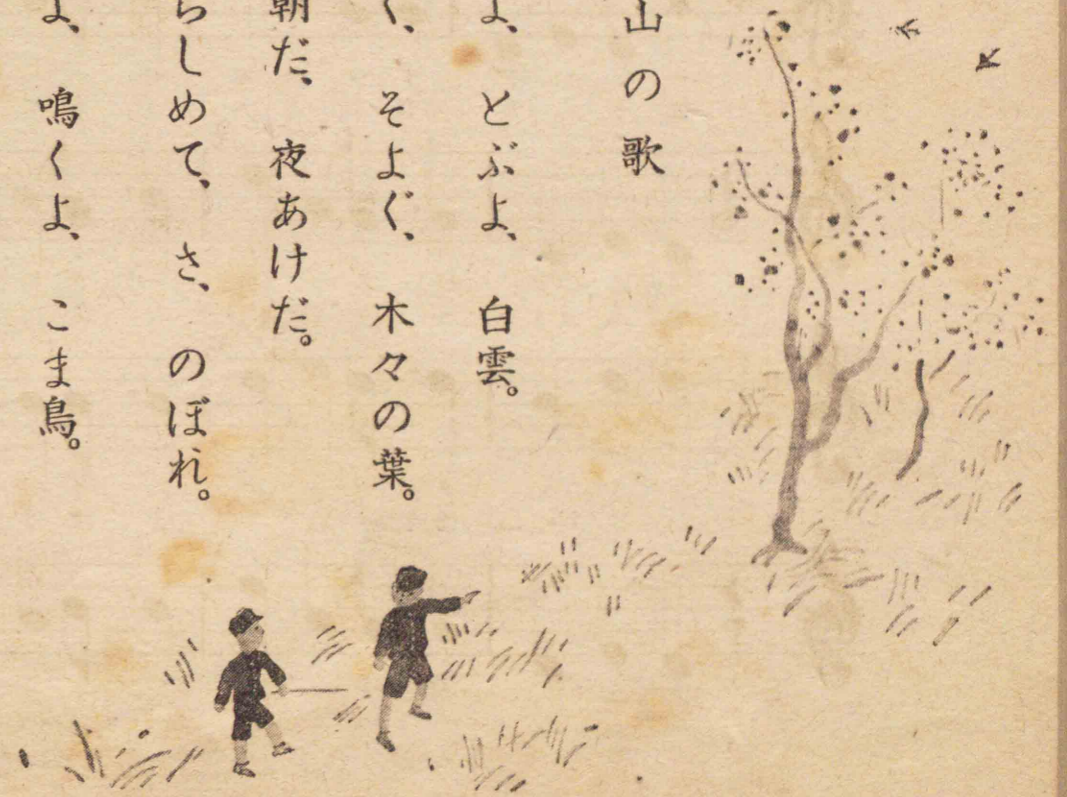 山の歌
よ、とぶよ、白雲。
く、そよぐ、木々の葉。
朝だ、夜あけだ。
らしめて、さ、のぼれ。
よ、鳴くよ、こま鳥。